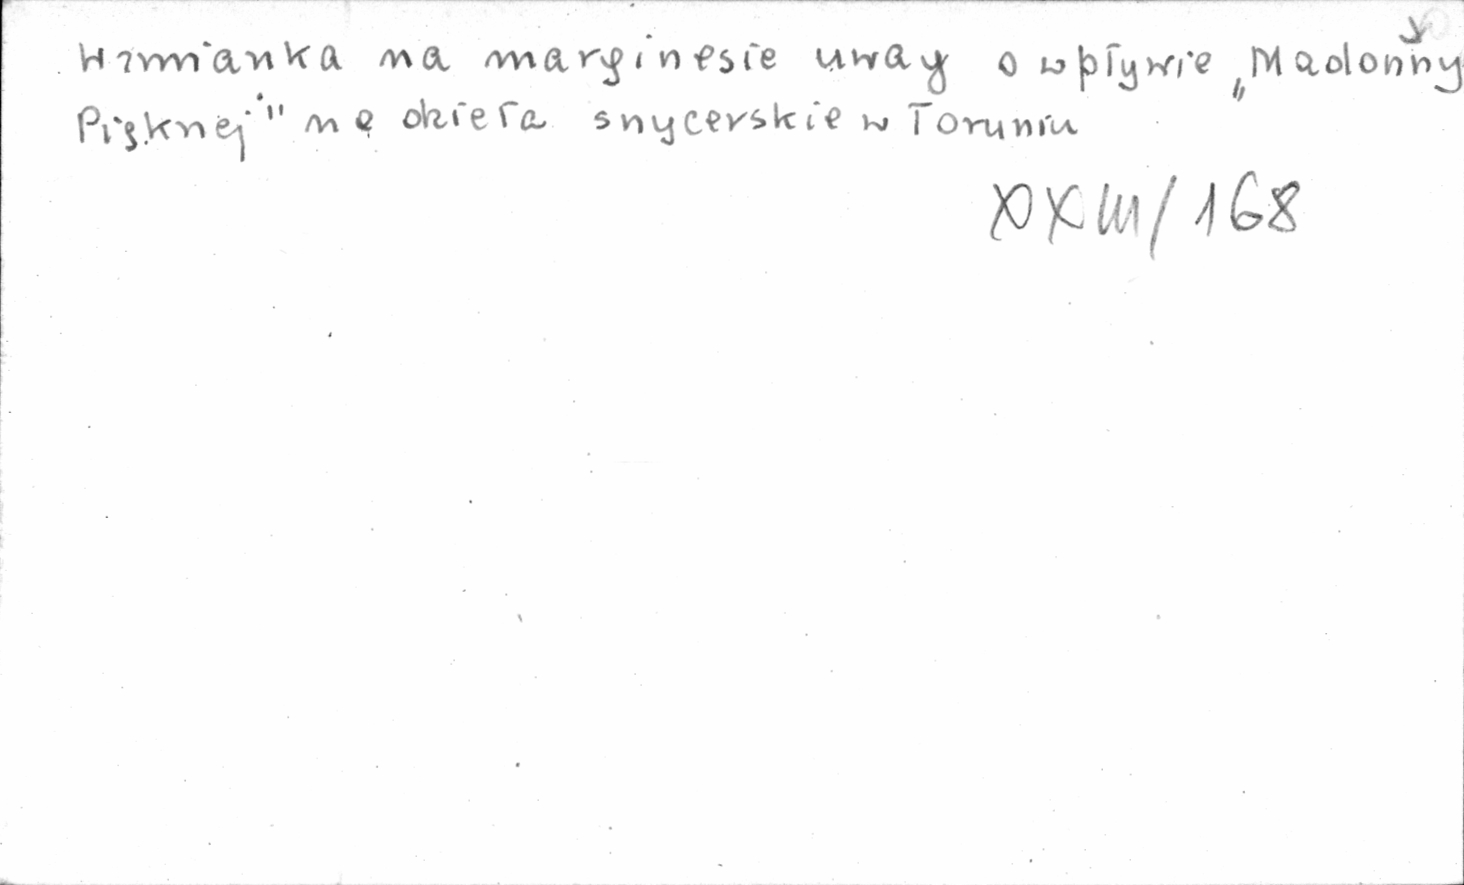 Wzmianka na marginesie uwag o wpływie „Madonny
Pięknej" na dzieła snycerskie w Toruniu
XXIII/168